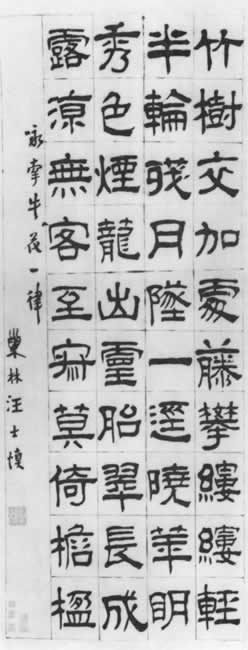 竹樹交加處藤攀縷縷輕
半輪殘月墜一逕曉華明
秀色煙龍出靈胎翠長成
露涼無客至寂莫倚檐楹
詠牽牛花一律
巢林汪士慎